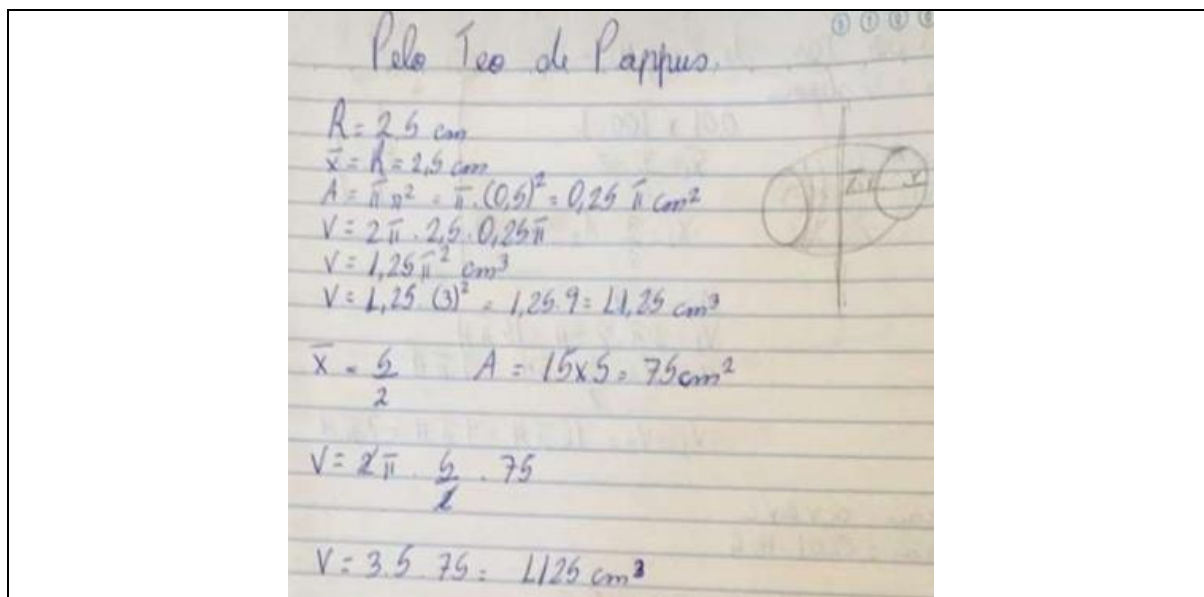 Pelo Teo de Pappus.
R = 2,5 cm
x̄ = R = 2,5 cm
A = π r² = π.(0,5)² = 0,25 π cm²
V = 2π . 2,5 . 0,25π
V = 1,25π² cm³
V = 1,25 . (3)² = 1,25 . 9 = 11,25 cm³
x̄ = 5/2 A = 15x5 = 75cm²
V = 2π . 5/2 . 75
V = 3.5 75 = 1125 cm³